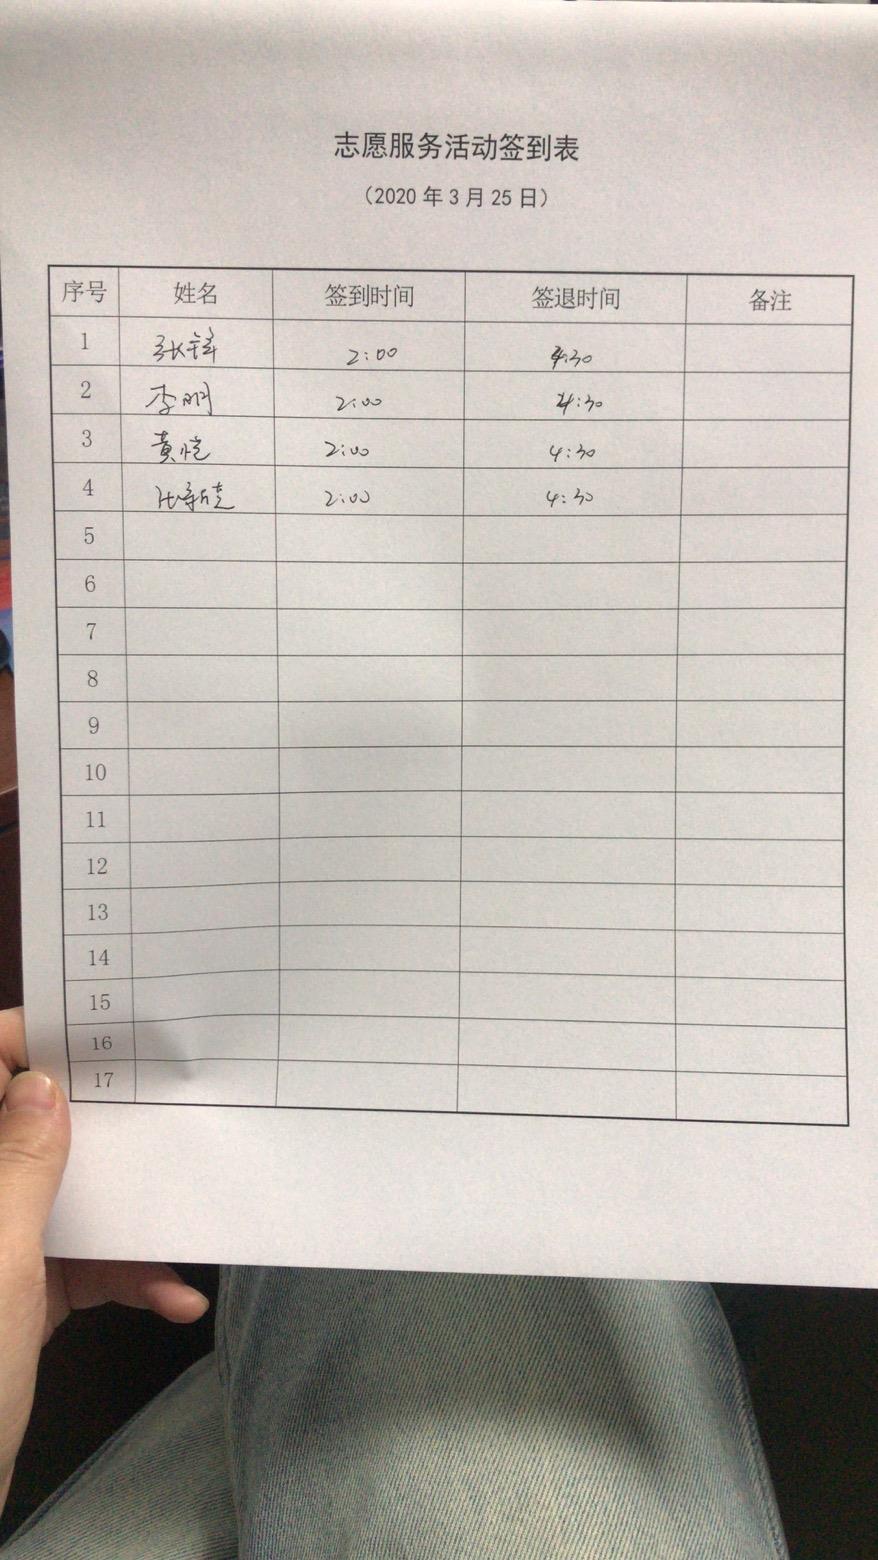 志愿服务活动签到表
（2020 年 3 月 25 日）
序号 姓名 签到时间 签退时间 备注
1 张锋 2:00 4:30
2 李明 2:00 4:30
3 黄恺 2:00 4:30
4 2:00 4:30
5
6
7
8
9
10
11
12
13
14
15
16
17